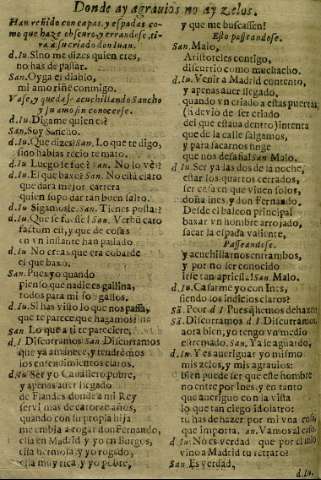 Donde ay agrauios no ay zelos.
Han reñido con capas, y espadas co-
mo que haze obscuro, y errandose, ti-
ra a su criado don Iuan.
d. Iu. Si no me dizes quien eres,
no has de passar.
San. Oyga el diablo,
mi amo riñe conmigo.
Vase, y quedase acuchillando Sancho
y su amo sin conocerse.
d. Iu. Digame quien es?
San. Soy Sancho.
d. Iu. Que dizes? San. Lo que te digo,
sino hablas recio te mato.
d. Iu. Luego se fue? San. No lo vè?
d. Iu. El que baxò? San. No està claro
que darà mejor carrera
quien supo dar tan buen salto.
d. Iu. Sigamosle. San. Tienes postas?
d. Iu. Que se fuesse! San. Verbu caro
factum est, y que de cosas
en vn instante han passado
d. Iu. No creas que era cobarde
el que baxò.
San. Pues yo quando
pienso que nadie es gallina,
todos para mi son gallos.
d. Iu. Si has visto lo que nos passa,
que te parece que hagamos?
San. Lo que a ti te pareciere,
d. I. Discurramos San. Discurramos
que ya amanece, y tendremos
los entendimientos claros.
d. Iu. Ser yo Cauallero pobre,
y apenas auer llegado
de Flandes donde a mi Rey
serui mas de catorze años,
quando con su propia hija
me embia a rogar don Fernando,
ella en Madrid y yo en Burgos,
ella hermosa, y yo rogado,
ella muy rica, y yo pobre,
y que me buscassen?
Esto passeandose.
San. Malo,
Aristoteles contigo,
discurrio como muchacho.
d. Iu. Venir a Madrid contento,
y apenas auer llegado,
quando vn criado a estas puertas
(a deuio de ser criado
del que estaua dentro) intenta
que de la calle salgamos,
y para sacarnos finge
que nos desafia? San. Malo.
d. Iu. Ser ya las dos de la noche,
estar los quartos cerrados,
ser casa en que viuen solos,
doña Ines, y don Fernando.
Desde el balcon principal
baxar vn hombre arrojado,
sacar la espada valiente,
Passeandose.
y acuchillarnos entrambos,
y por no ser conocido
irse tan aprissa. San. Malo.
d. Iu. Casarme yo con Ines,
siendo los indicios claros?
Sã. Peor d. I. Pues q̃ hemos de hazer
Sã. Discurramos d. I. Discurramos.
aora bien, yo tengo vn medio
estremado. San. Ya le aguardo,
d. Iu. Y es aueriguar yo mismo
mis zelos, y mis agrauios:
bien puede ser que esse hombre
no entre por Ines, y en tanto
que aueriguo con la vista
lo que tan ciego idolatro:
tu has de hazer por mi vna cosa
que importa. San. Vamos al caso
d. Iu. No es verdad que por el tuyo
vino a Madrid tu retrato?
San. Es verdad,
d. Iu.